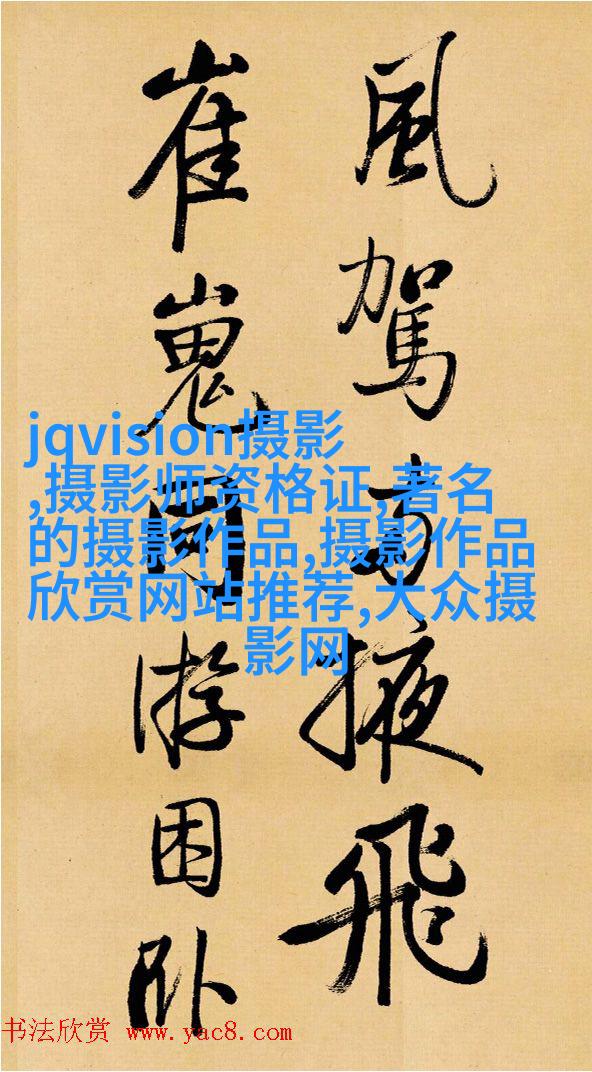 風駕掖飛
崔嵬同游困卧
jqvision摄影
,摄影师资格证,著名
的摄影作品,摄影作品
欣赏网站推荐,大众摄
影网
书法欣赏 www.yac8.com